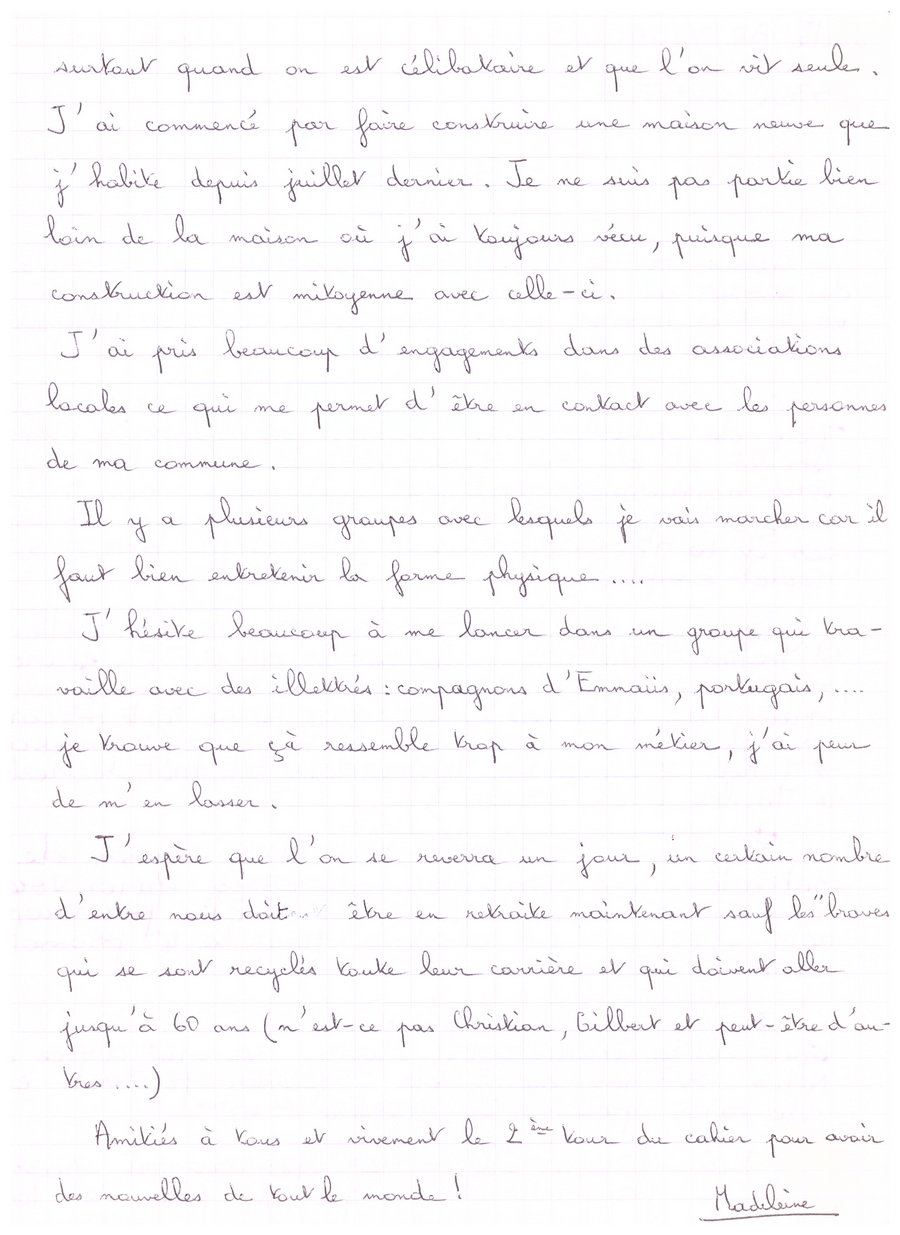 surtout quand on est célibataire et que l'on vit seule.
J'ai commencé par faire construire une maison neuve que
j'habite depuis juillet dernier. Je ne suis pas partie bien
loin de la maison où j'ai toujours vécu, puisque ma
construction est mitoyenne avec celle-ci.
J'ai pris beaucoup d'engagements dans des associations
locales ce qui me permet d'être en contact avec les personnes
de ma commune.
Il y a plusieurs groupes avec lesquels je vais marcher car il
faut bien entretenir la forme physique ....
J'hésite beaucoup à me lancer dans un groupe qui tra-
vaille avec des illettrés : compagnons d'Emmaüs, portugais, ....
je trouve que çà ressemble trop à mon métier, j'ai peur
de m'en lasser.
J'espère que l'on se reverra un jour, un certain nombre
d'entre nous doit être en retraite maintenant sauf les "braves
qui se sont recyclés toute leur carrière et qui doivent aller
jusqu'à 60 ans (n'est-ce pas Christian, Gilbert et peut-être d'au-
tres ....)
Amitiés à tous et vivement le 2ème tour du cahier pour avoir
des nouvelles de tout le monde !
Madeleine